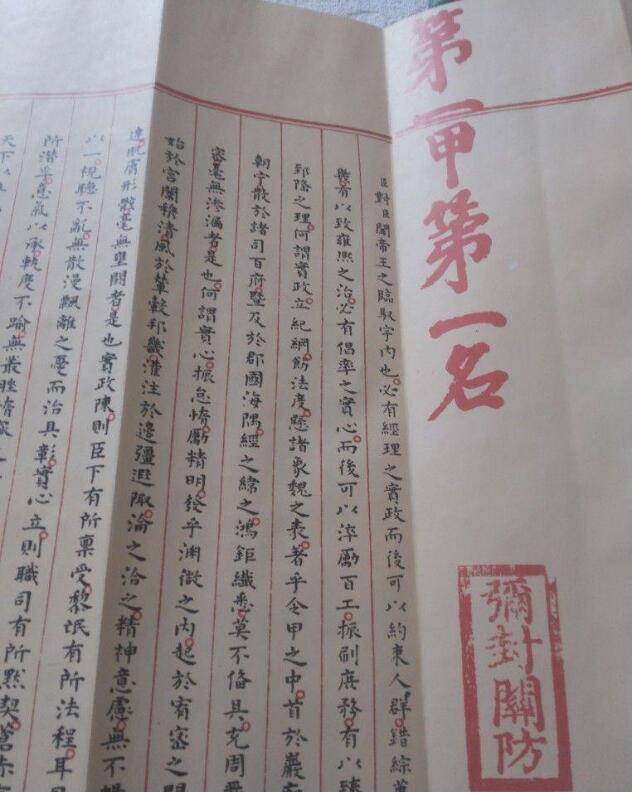 第一甲第一名
彌封關防
臣對臣聞帝王之臨馭宇內也必有經理之實政而後可以約束人群錯綜萬
幾有以致雍熙之治必有倡率之實心而後可以淬勵百工振刷庶務有以臻
郅隆之理何謂實政立紀綱飭法度懸諸象魏之表著乎令甲之中首於巖廊
朝宁散於諸司百府暨及於郡國海隅經之緯之鴻鉅纖悉莫不備具充周嚴
密毫無滲漏者是也何謂實心振怠惰勵精明發乎淵微之內起於宥密之間
始於宮闈穆清風於輦轂邦畿灌注於邊疆遐陬淪之洽之精神意慮無不暢
達肌膚形骸毫無壅閼者是也實政陳則臣下有所稟受黎氓有所法程耳目
以一視聽不亂無散漫飄離之憂而治具彰實心立則職司有所默契蒼赤有
所潛孚意氣以承軌度不踰無叢脞惰窳之
天下以